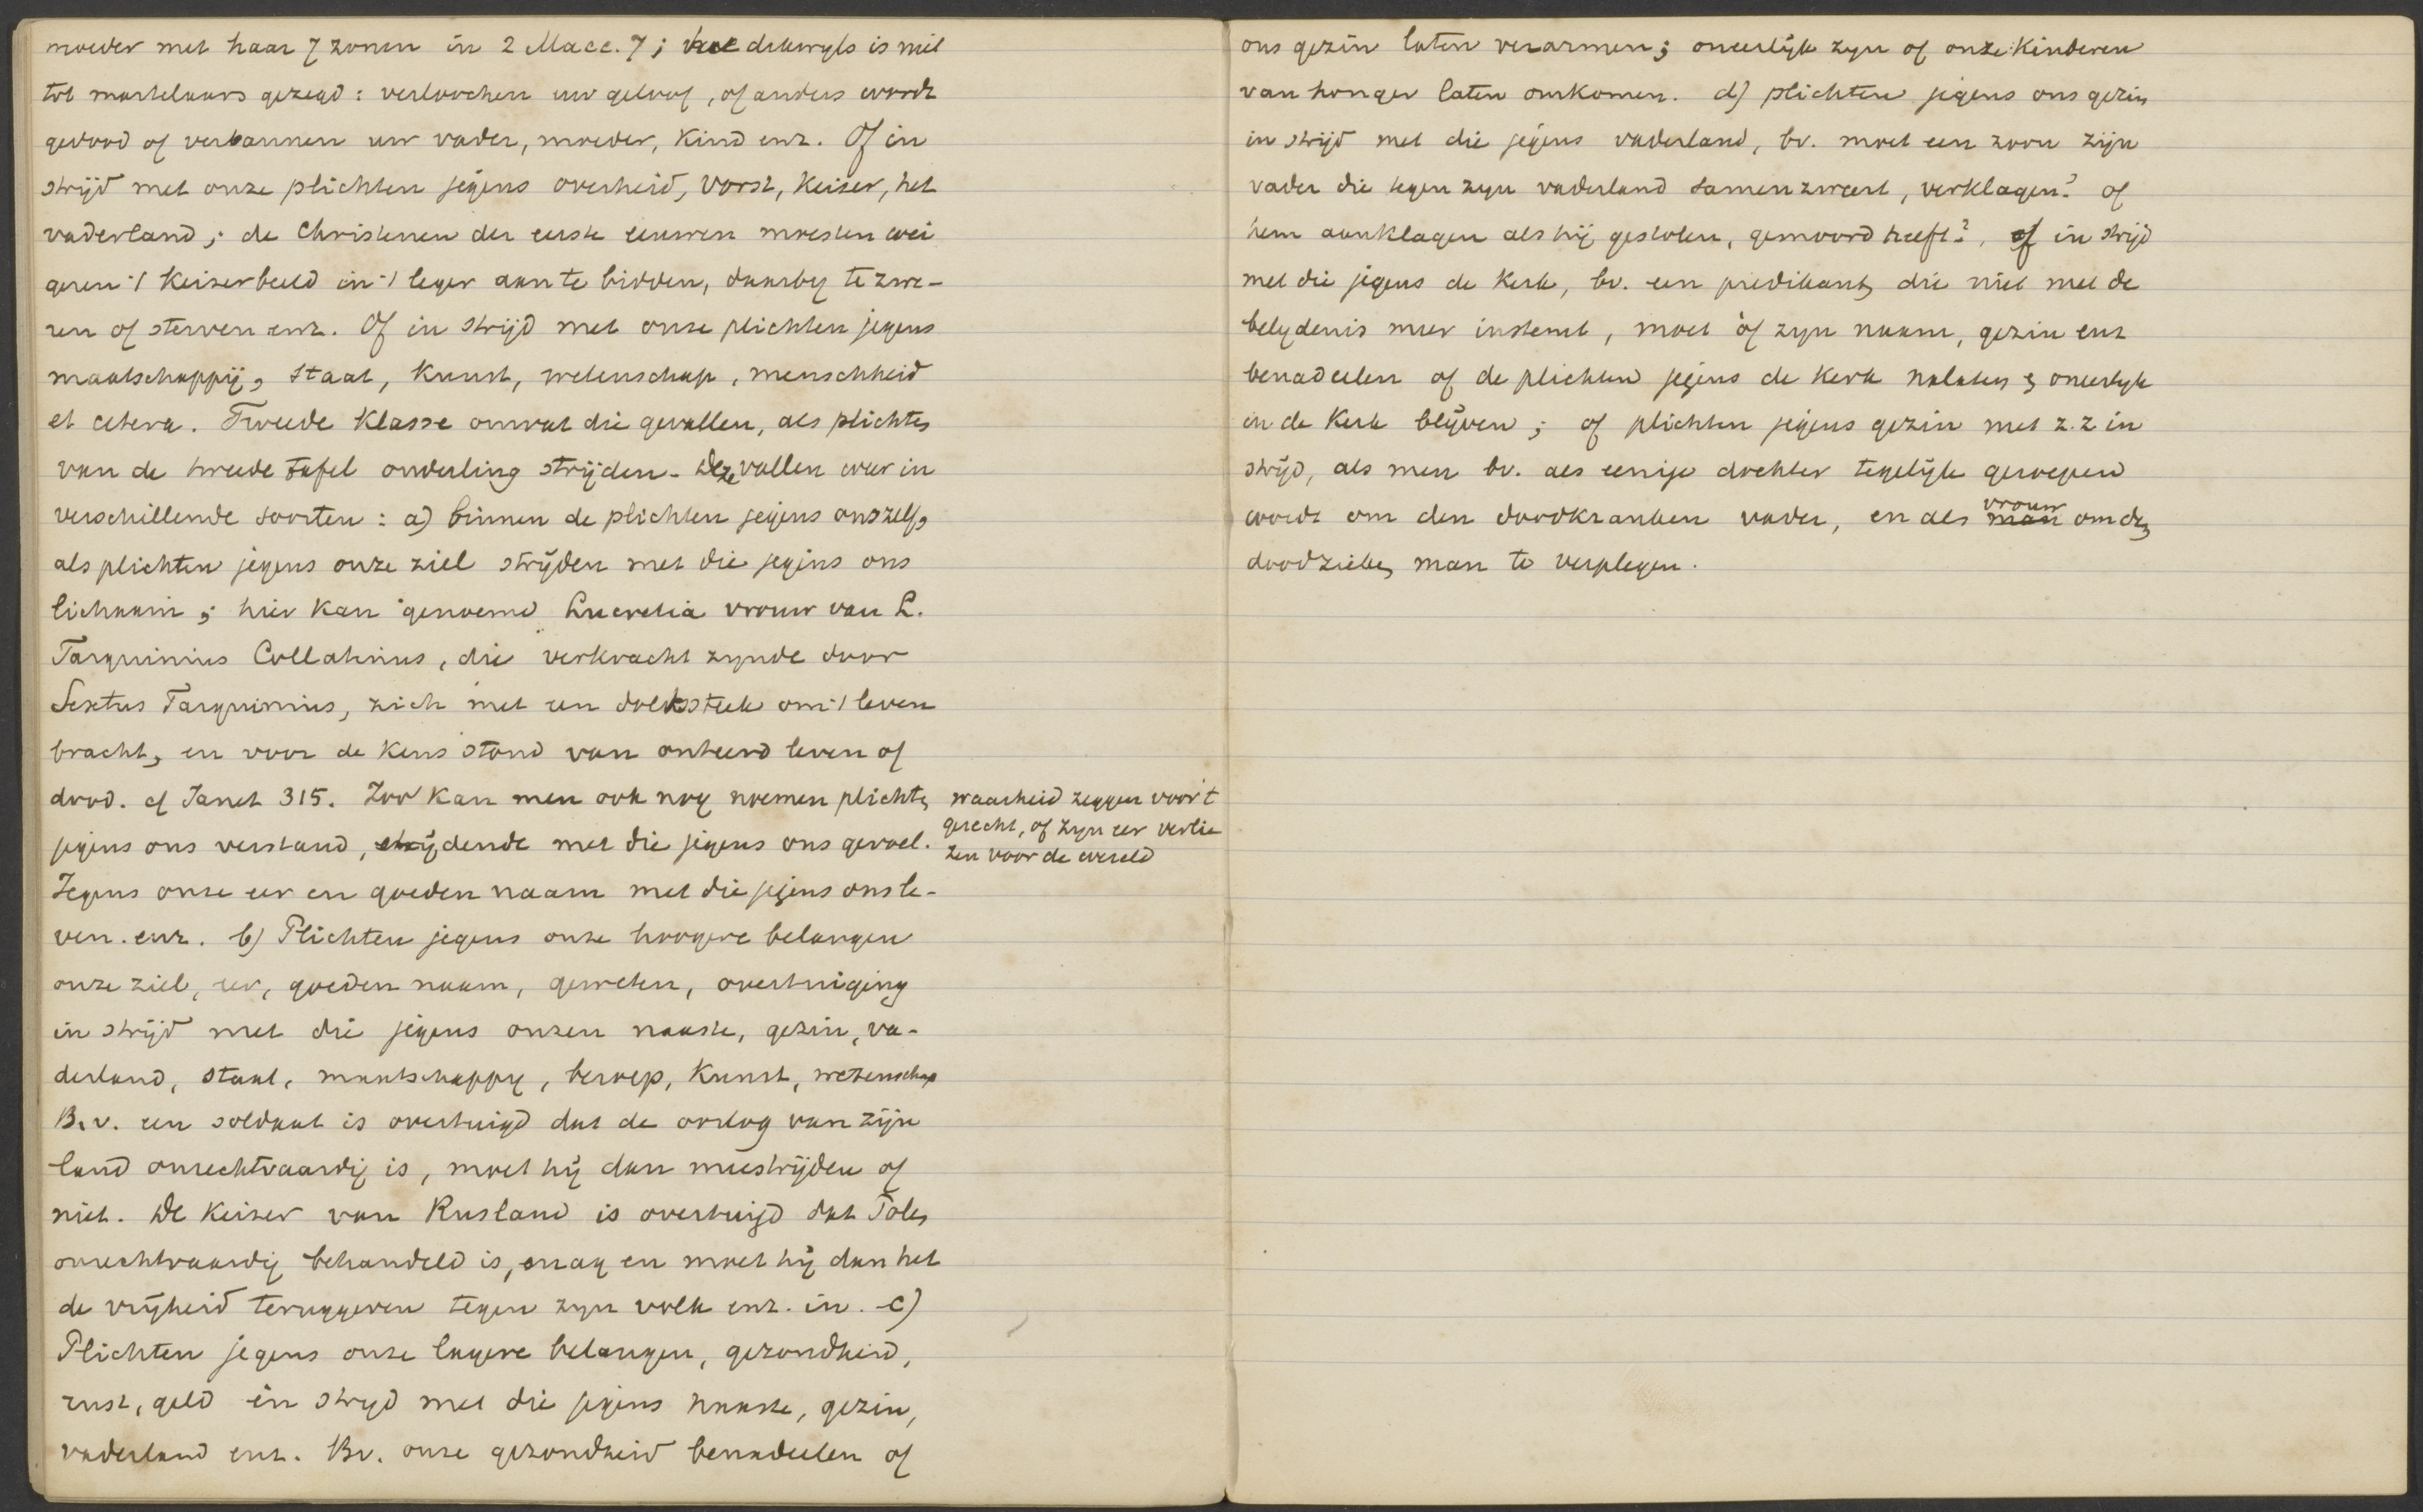 moeder met haar 7 zonen in 2 Macc. 7; hoe dikwyls is niet
tot martelaars gezegd: verloochen uw geloof, of anders wordt
gedood of verbannen uw vader, moeder, kind enz. Of in
strijd met onze plichten jegens overheid, vorst, keizer, het
vaderland; de Christenen der eerste eeuwen moesten wei
geren 't keizerbeeld in 't leger aan te bidden, daarby te zwe-
ren of sterven enz. Of in strijd met onze plichten jegens
maatschappij, staat, kunst, wetenschap, menschheid
et cetera. Tweede klasse omvat die gevallen, als plichten
van de tweede tafel onderling strijden. Deze vallen weer in
verschillende soorten: a) binnen de plichten jegens onszelf,
als plichten jegens onze ziel strijden met die jegens ons
lichaam; hier kan genoemd Lucretia vrouw van L.
Tarquinius Collatinus, die verkracht zynde door
Sextus Tarquinius, zich met een dolksteek om 't leven
bracht, en voor de keus stond van onteerd leven of
dood. cf Janet 315. Zoo kan men ook nog noemen plichten
jegens ons verstand, strijdende met die jegens ons gevoel.
waarheid zeggen voor 't
gerecht, of zyn eer verlie
zen voor de wereld
Jegens onze eer en goeden naam met die jegens ons le-
ven. enz. b) Plichten jegens onze hoogere belangen
onze ziel, eer, goeden naam, geweten, overtuiging
in strijd met die jegens onzen naaste, gezin, va-
derland, staat, maatschappy, beroep, kunst, wetenschap
B.v. een soldaat is overtuigd dat de oorlog van zijn
land onrechtvaardig is, moet hij dan meestrijden of
niet. De keizer van Rusland is overtuigd dat Polen
onrechtvaardig behandeld is, mag en moet hij dan het
de vrijheid teruggeven tegen zyn volk enz. in. c)
Plichten jegens onze lagere belangen, gezondheid,
rust, geld in stryd met die jegens naaste, gezin,
vaderland enz. Bv. onze gezondheid benadeelen of
ons gezin laten verarmen; oneerlijk zyn of onze kinderen
van honger laten omkomen. d) plichten jegens ons gezin
in strijd met die jegens vaderland, bv. moet een zoon zijn
vader die tegen zyn vaderland samenzweert, verklagen? of
hem aanklagen als hij gestolen, gemoord heeft?, of in strijd
met die jegens de kerk, bv. een predikant, die niet met de
belydenis meer instemt, moet òf zyn naam, gezin enz
benadeelen of de plichten jegens de kerk nalaten & oneerlyk
in de kerk blijven; of plichten jegens gezin met z.z in
strijd, als men bv. als eenige dochter tegelijk geroepen
wordt om den doodkranken vader, en als man vrouw om den
doodzieken man te verplegen.